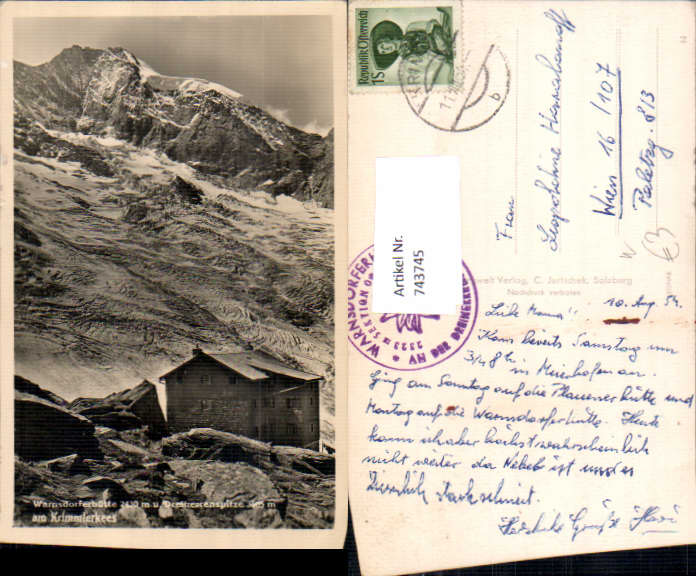 Warnsdorferhütte 2430 m u. Dreiherrenspitze m
am Krimmlerkees
Republik Österreich
1S
Artikel Nr.
743745
WARNSDORFER
SEKTION
2323 m
NV DER
b
Frau
Leopoldine
Wien 16/107
813
welt Verlag, C. Jurischek, Salzburg
Nachdruck verboten
10. Aug. 54.
Liebe Mama!!
Kam bereits Samstag um
3/4 8 h in Mayrhofen an.
Ging am Sonntag auf die Plauenerhütte und
Montag auf die Warnsdorferhütte. Heute
kann ich aber höchstwahrscheinlich
nicht weiter da Nebel ist und es
ziemlich stark schneit.
Herzliche Grüße